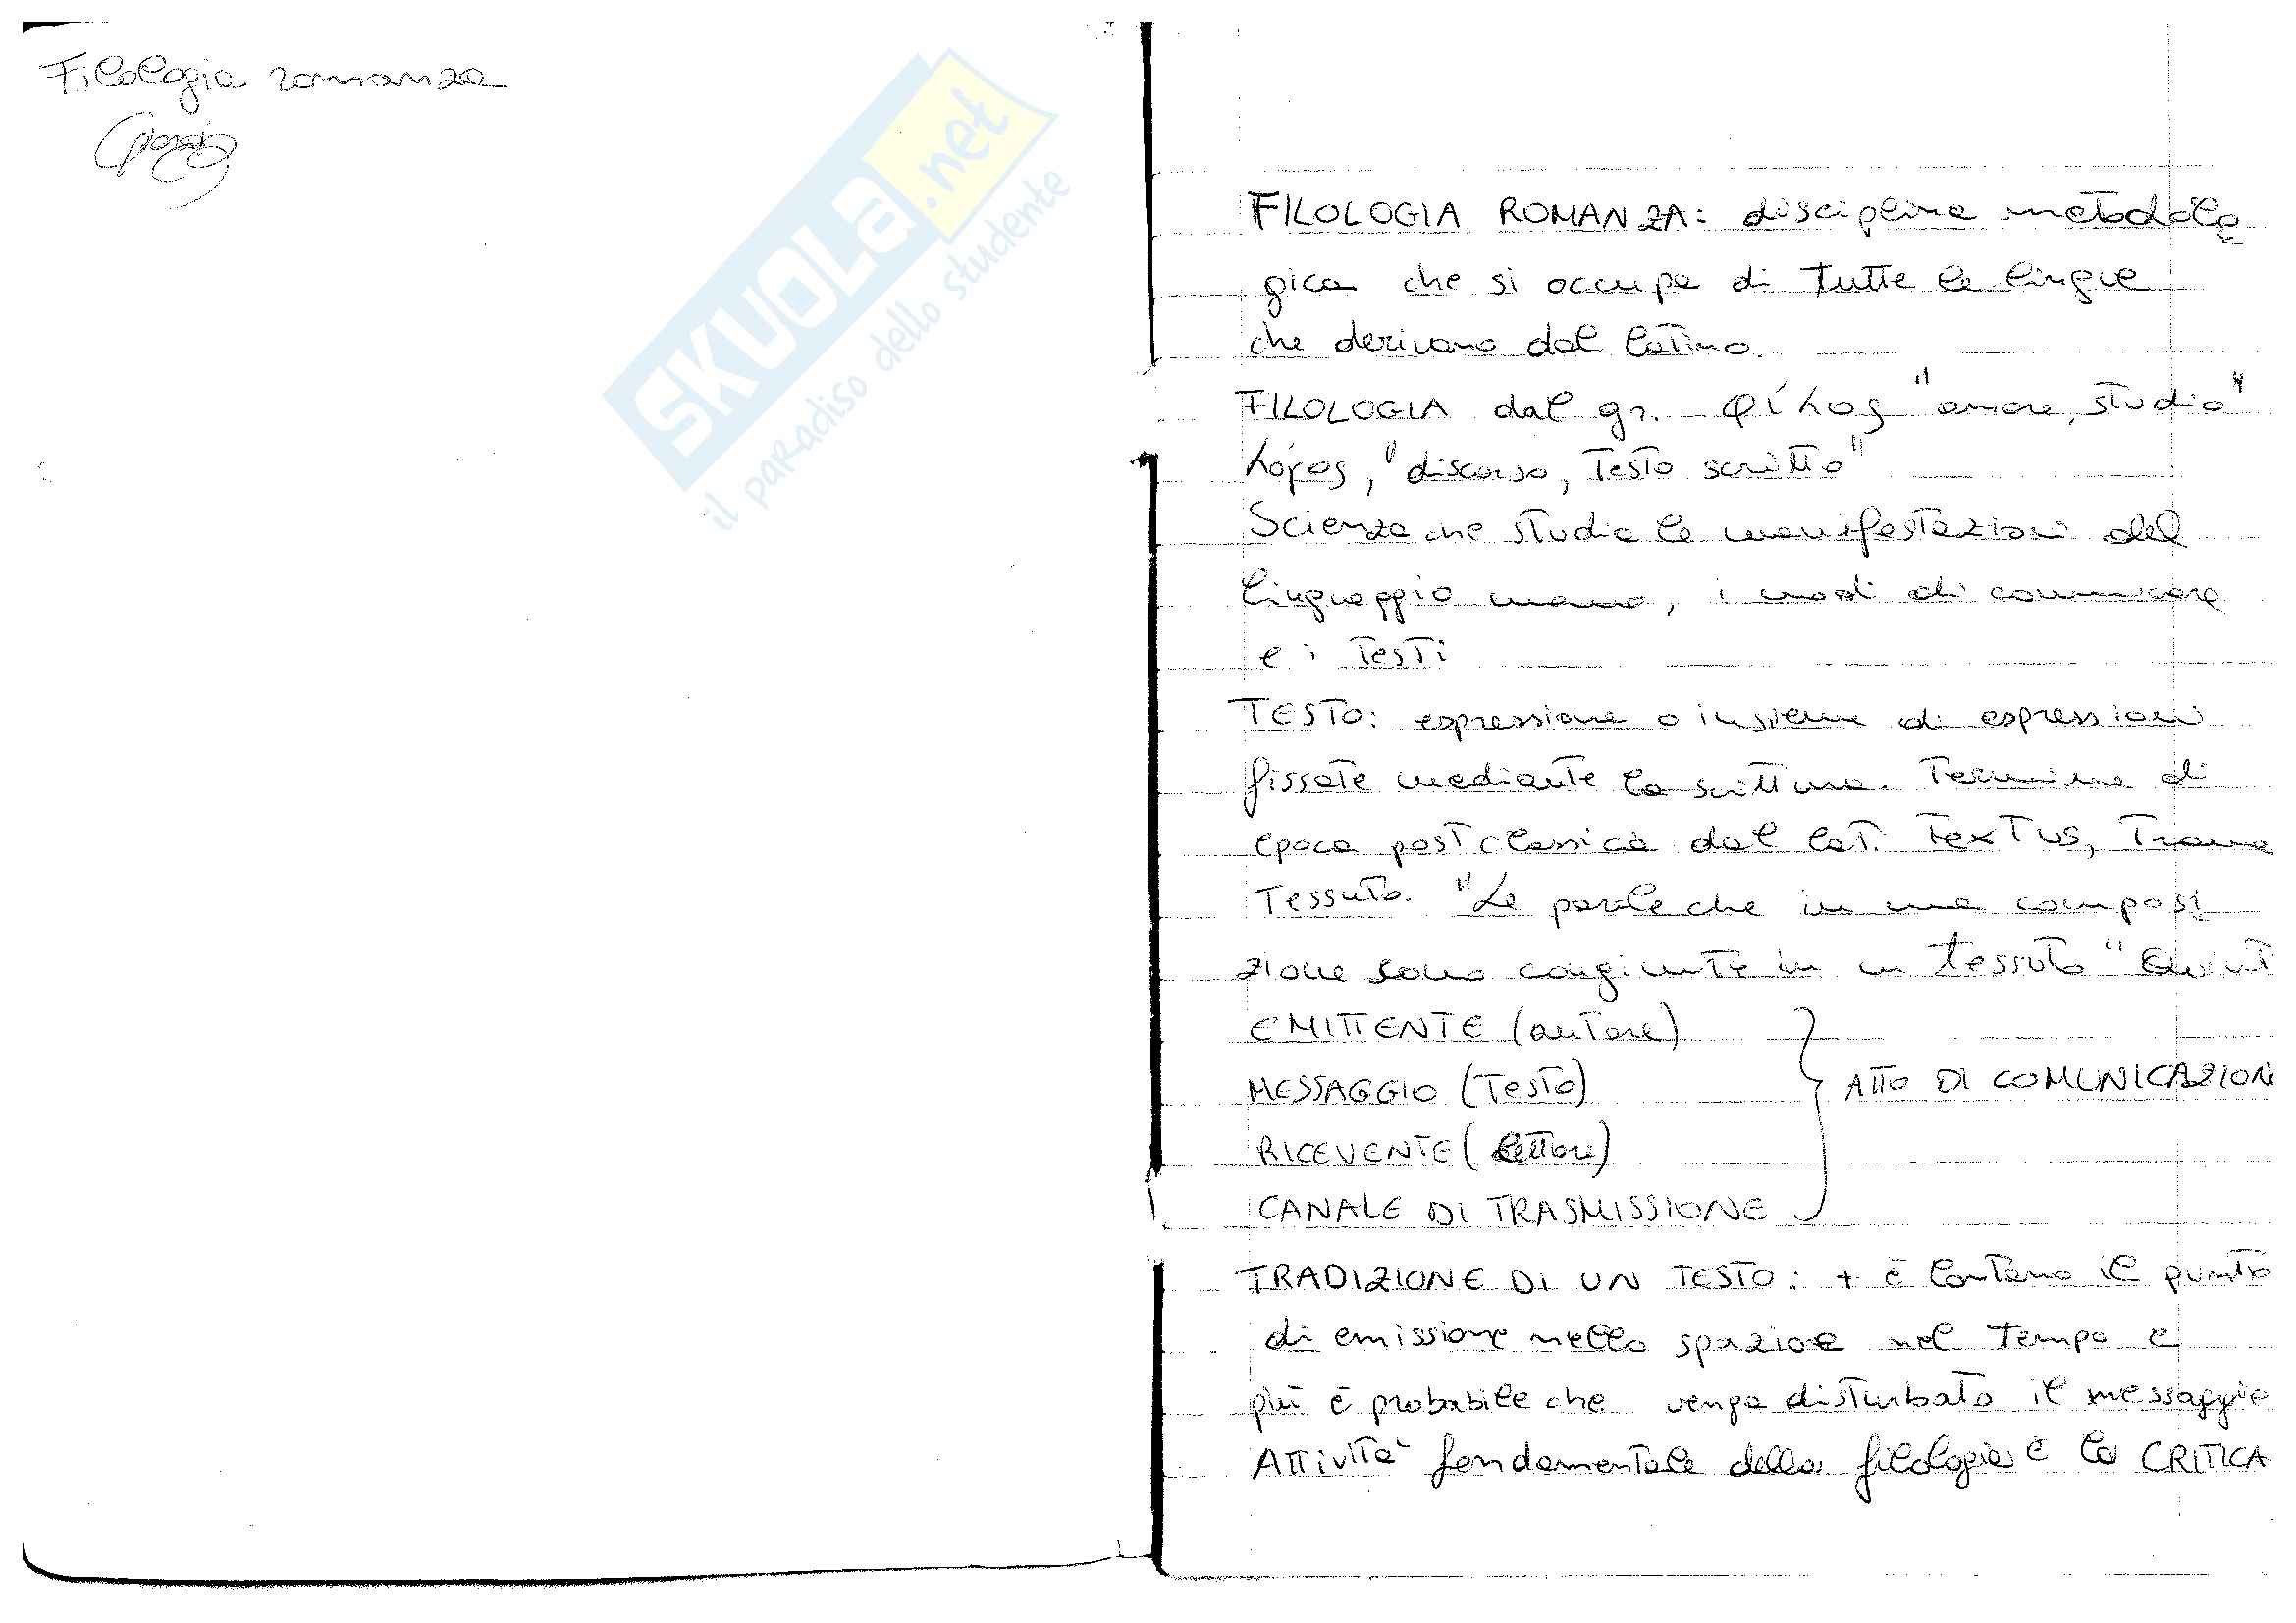 Filologia romanza
SKUOLA.net
il paradiso dello studente
FILOLOGIA ROMANZA: disciplina metodolo
gica che si occupa di tutte le lingue
che derivano dal latino.
FILOLOGIA dal gr. φίλος "amore, studio"
λόγος, "discorso, testo scritto"
Scienza che studia le manifestazioni del
linguaggio umano, i modi di comunicare
e i testi
TESTO: espressione o insieme di espressioni
fissate mediante la scrittura. Termine di
epoca postclassica dal lat. Textus, Trama
Tessuto. "Le parole che in una composi
zione sono congiunte in un tessuto" Quint
EMITTENTE (autore)
MESSAGGIO (testo)
ATTO DI COMUNICAZION
RICEVENTE (lettore)
CANALE DI TRASMISSIONE
TRADIZIONE DI UN TESTO: + è lontano il punto
di emissione nello spazio e nel tempo e
più è probabile che venga disturbato il messaggio
Attività fondamentale della filologia è la CRITICA